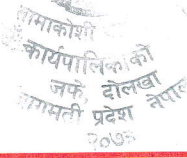 तामाकोशी
कार्यपालिकाको
जफे, दोलखा
बागमती प्रदेश नेपाल
२०७३